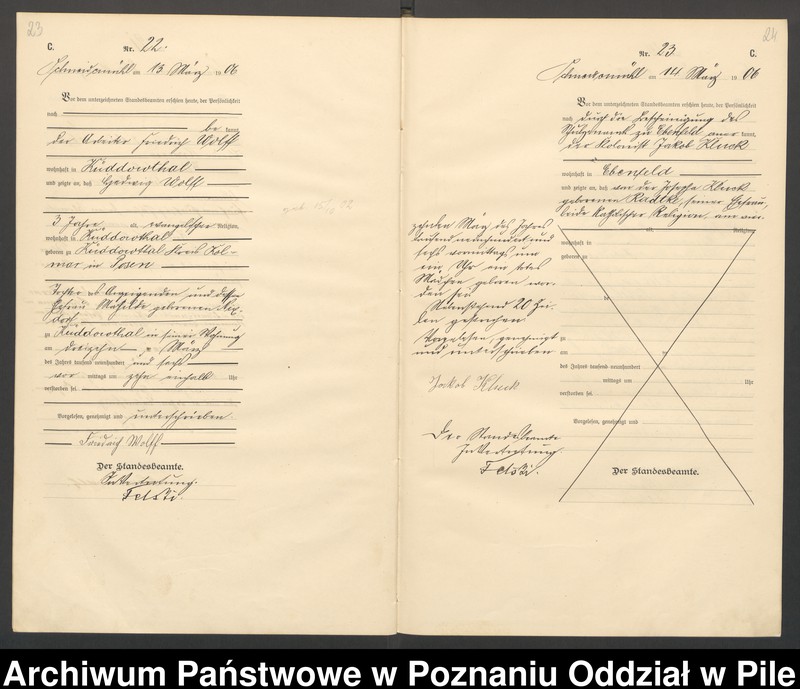 23
C.
Nr. 22.
Schneidemühl am 13 März 1906
Vor dem unterzeichneten Standesbeamten erschien heute, der Persönlichkeit
nach
be kannt,
der Arbeiter Friedrich Wolff
wohnhaft in Küddowthal
und zeigte an, daß Hedwig Wolff
3 Jahre alt, evangelischer Religion,
wohnhaft in Küddowthal
geboren zu Küddowthal Kreis Kol-
mar in Posen
Tochter des Anzeigenden und dessen
Ehefrau Mathilde geborenen
dorf
zu Küddowthal in seiner Wohnung
am dreizehnten März
des Jahres tausend neunhundert und sechs
vor mittags um zehn einhalb Uhr
verstorben sei.
Vorgelesen, genehmigt und unterschrieben
Friedrich Wolff
Der Standesbeamte.
In Vertretung.
24
Nr. 23
C.
Schneidemühl am 14 März 1906
Vor dem unterzeichneten Standesbeamten erschien heute, der Persönlichkeit
nach durch die Bescheinigung des
Schulzenamts zu Ebenfeld aner kannt,
der Kolonist Jakob Kluck
wohnhaft in Ebenfeld
und zeigte an, daß von der Josepha Kluck
geborenen Radtke, seiner Ehefrau,
beide katholischer Religion, am vier-
zehnten März des Jahres
tausend neunhundert und
sechs vormittags um
ein Uhr ein totes
Mädchen geboren wor-
den sei.
Nebenstehend 20 Zei-
len gestrichen
Vorgelesen, genehmigt
und unterschrieben
Jakob Kluck
Der Standesbeamte
In Vertretung
alt, Religion,
wohnhaft in
geboren zu
zu
am
des Jahres tausend neunhundert
mittags um Uhr
verstorben sei.
Vorgelesen, genehmigt und
Der Standesbeamte.
Archiwum Państwowe w Poznaniu Oddział w Pile